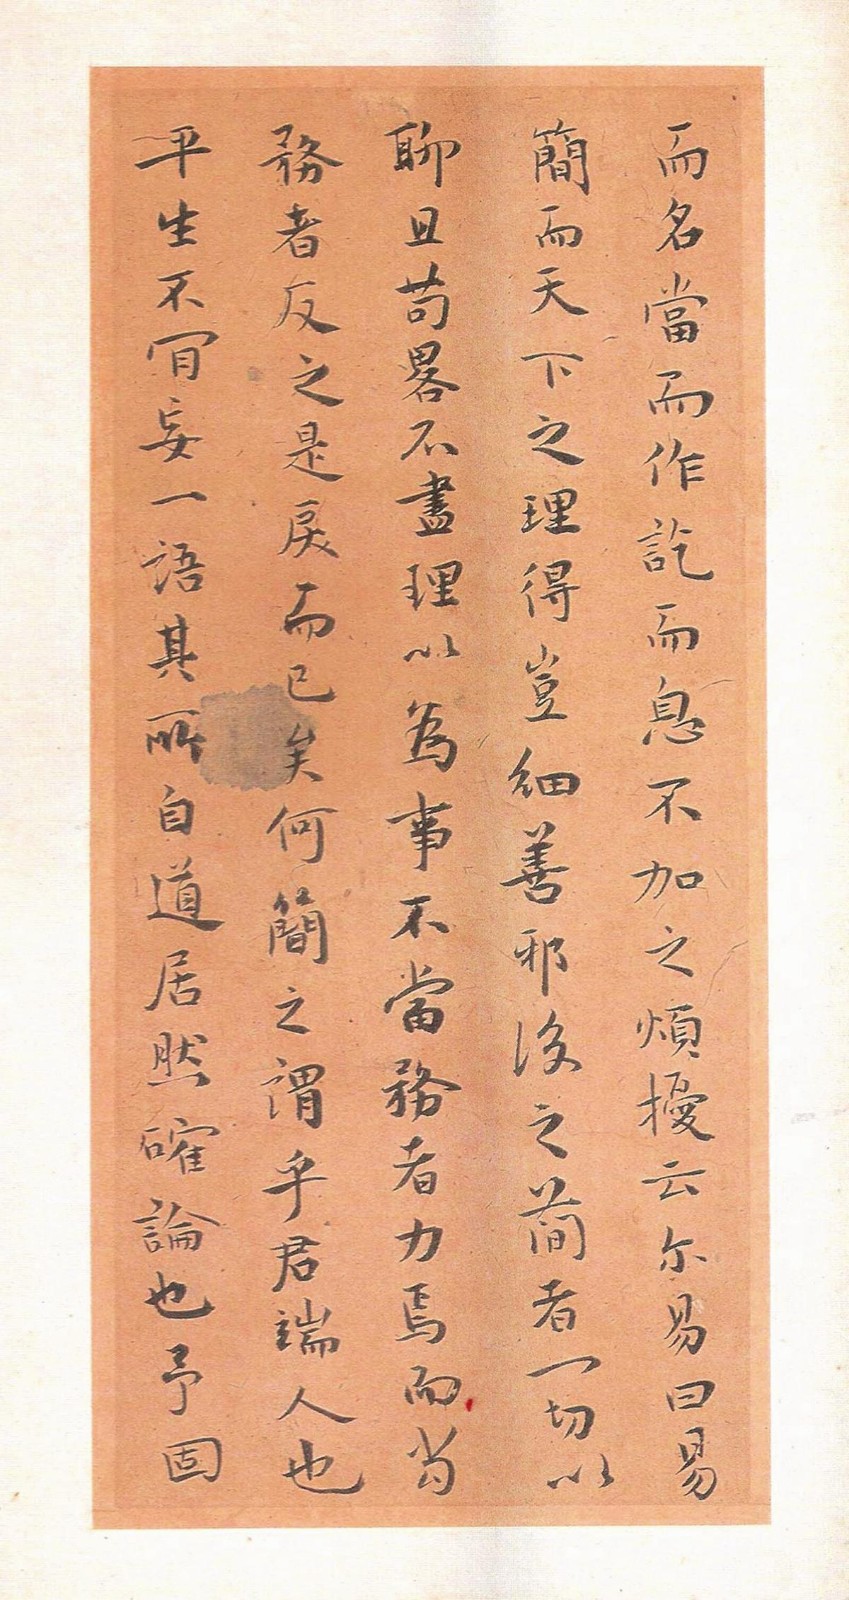 而名當而作訖而息不加之煩擾云尔易曰易
簡而天下之理得豈細善邪後之蕳者一切以
聊且苟畧不盡理以為事不當務者力焉而当
務者反之是戾而已矣何簡之謂乎君端人也
平生不肎妄一語其所自道居然確論也予固